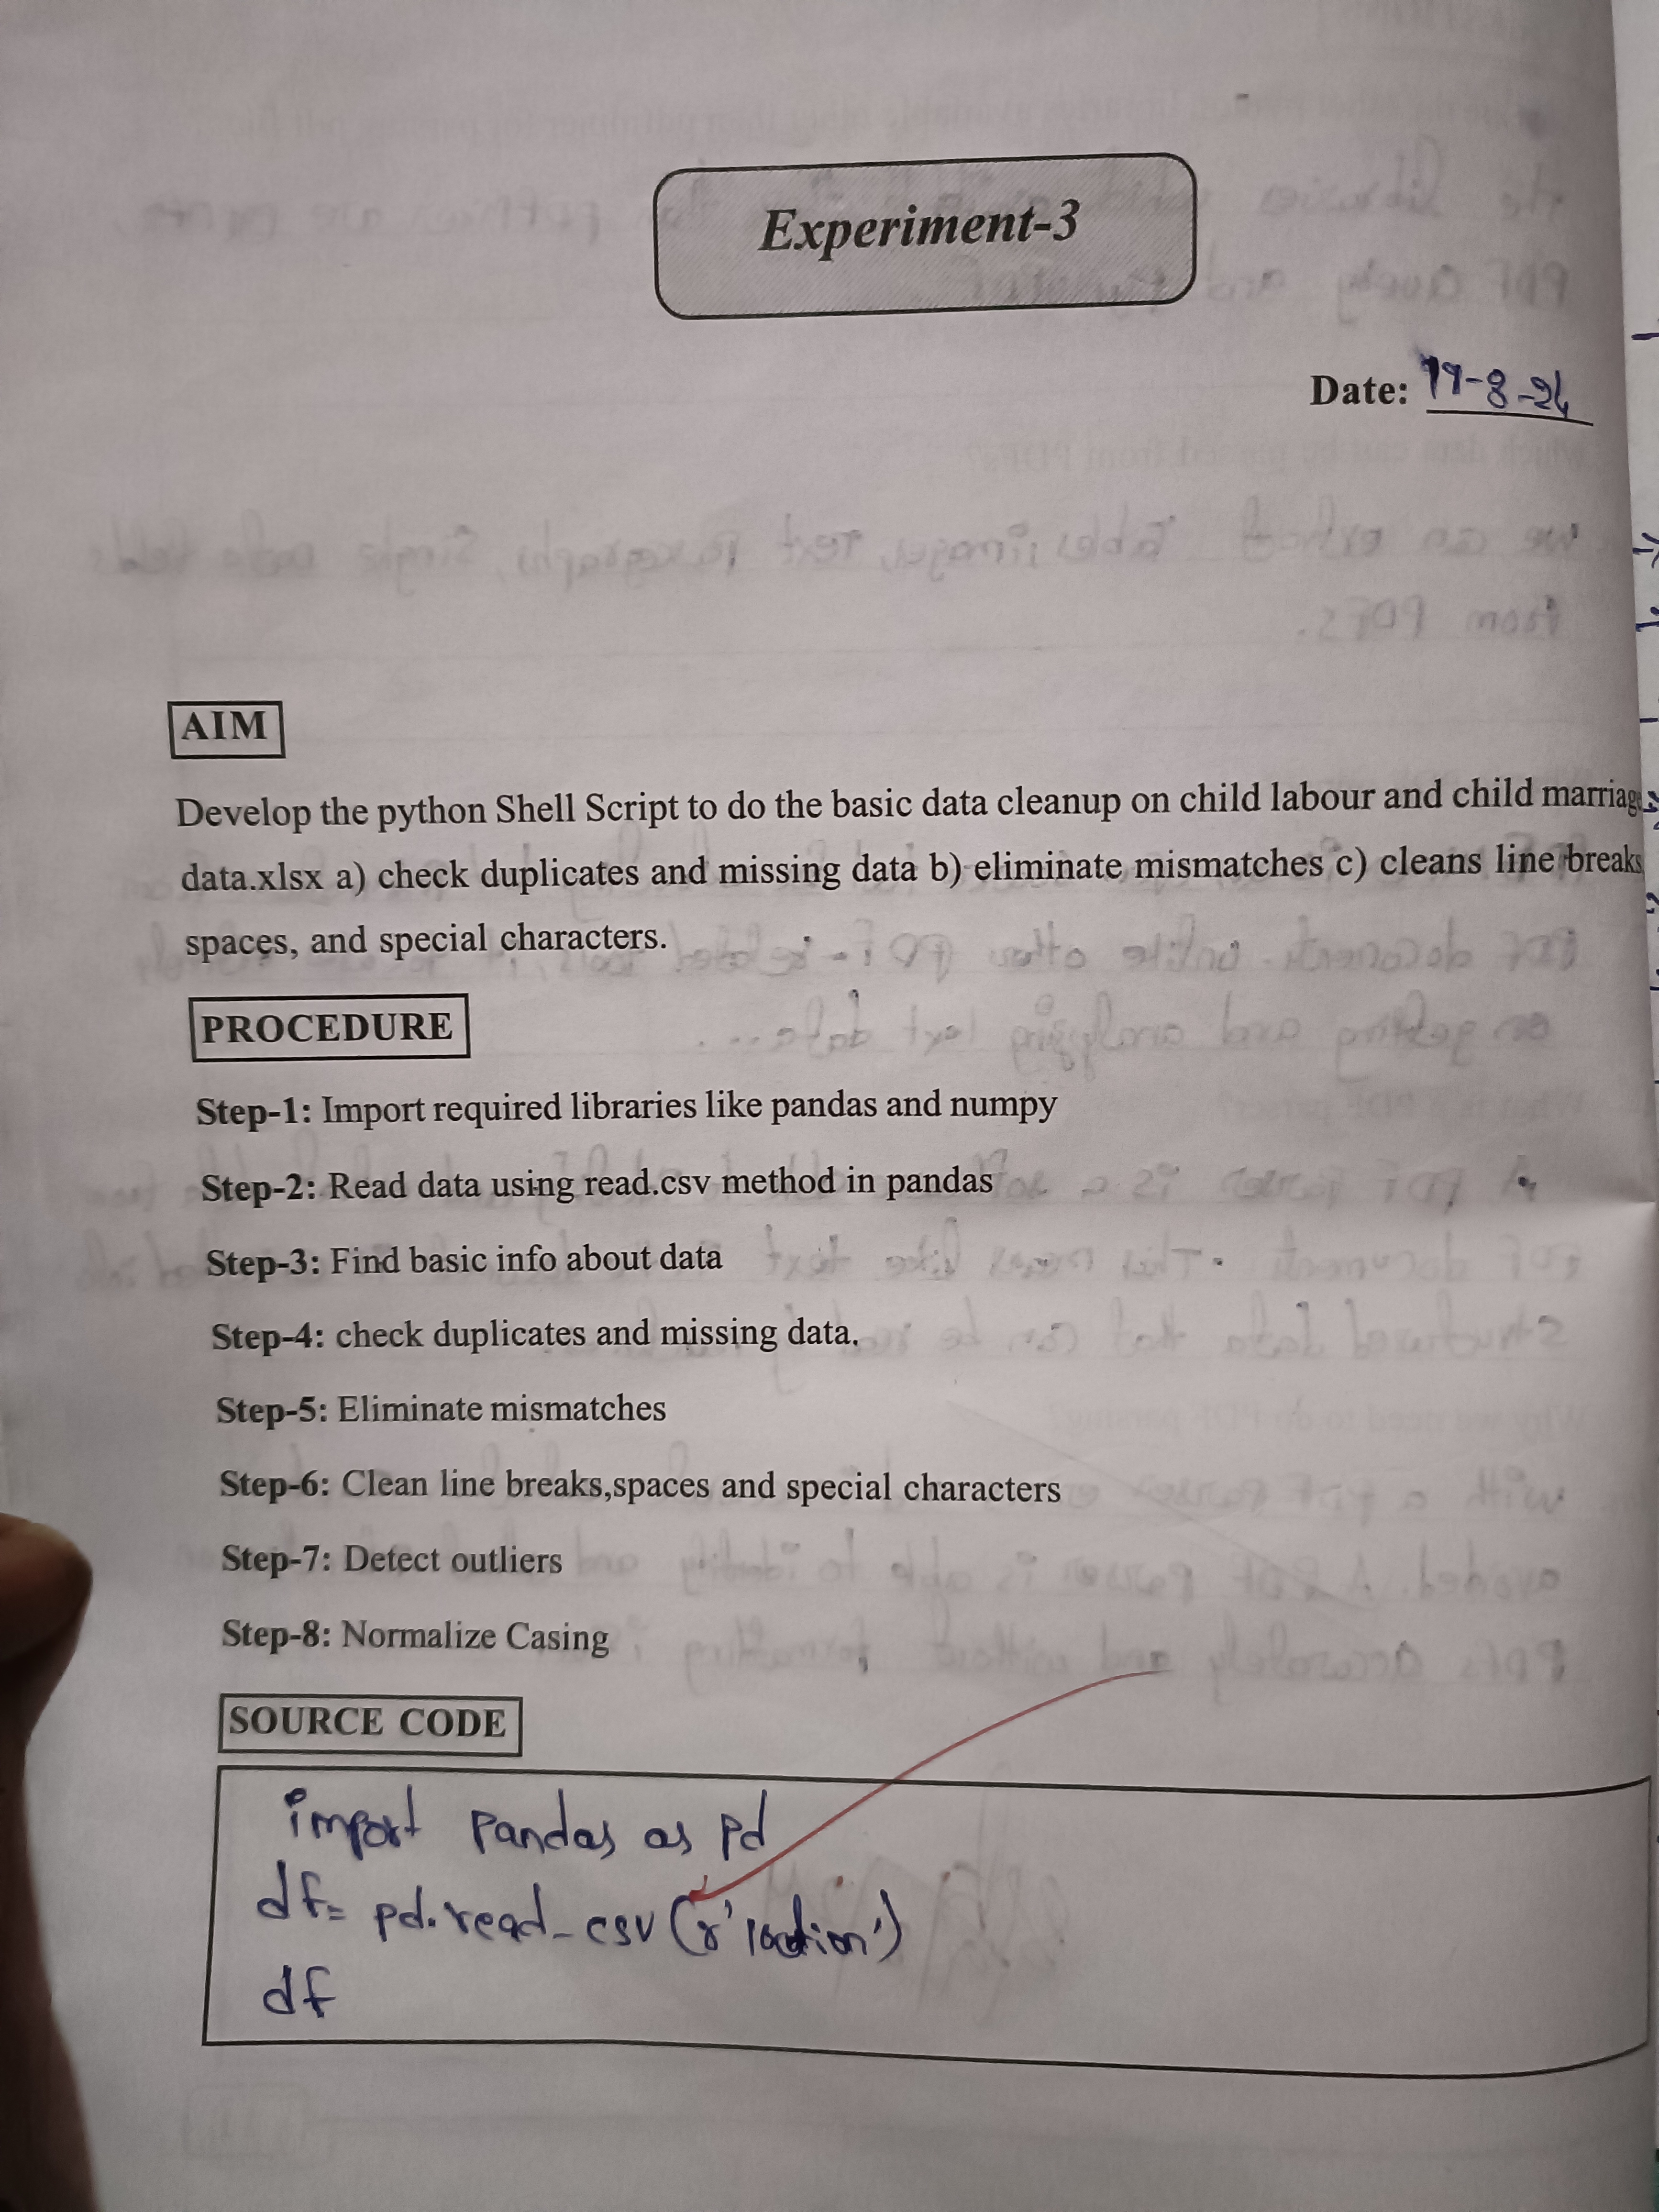 Experiment-3
Date: 19-8-24
AIM
Develop the python Shell Script to do the basic data cleanup on child labour and child marriage
data.xlsx a) check duplicates and missing data b) eliminate mismatches c) cleans line breaks
spaces, and special characters.
PROCEDURE
Step-1: Import required libraries like pandas and numpy
Step-2: Read data using read.csv method in pandas
Step-3: Find basic info about data
Step-4: check duplicates and missing data.
Step-5: Eliminate mismatches
Step-6: Clean line breaks,spaces and special characters
Step-7: Detect outliers
Step-8: Normalize Casing
SOURCE CODE
import pandas as pd
df= pd.read_csv (r'location')
df